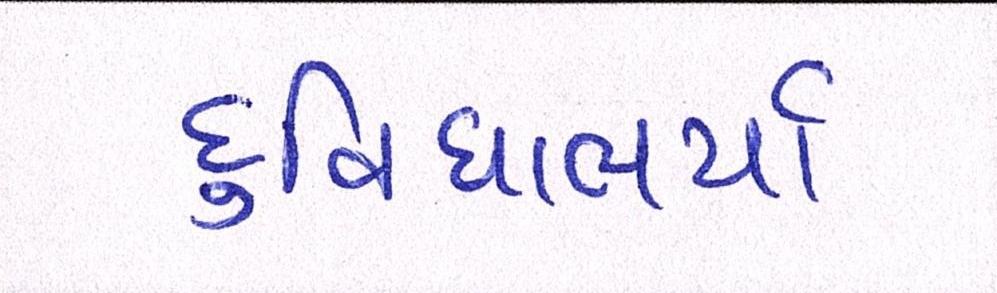 દુવિધાભર્યા